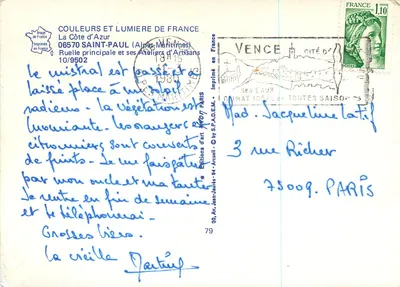 COULEURS ET LUMIERE DE FRANCE
La Côte d'Azur
06570 SAINT-PAUL (Alpes-Maritimes)
Ruelle principale et ses Ateliers d'Artisans
10/9502
Le mistral est passé et a
laissé place à un soleil
radieux. La végétation est
luxuriante. Les orangers et
citronniers sont couverts
de fruits. Je me fais gâter
par mon oncle et ma tante
Je rentre en fin de semaine
et te téléphonerai
Grosses bises.
La vieille
Martine
79
Imprimé en France
VENCE
1980
VENCE CITÉ D'
SES EAUX
CLIMAT TOUTES SAISONS
FRANCE
1,10
Mad. Jacqueline Latif
3 rue Richer
75009. PARIS